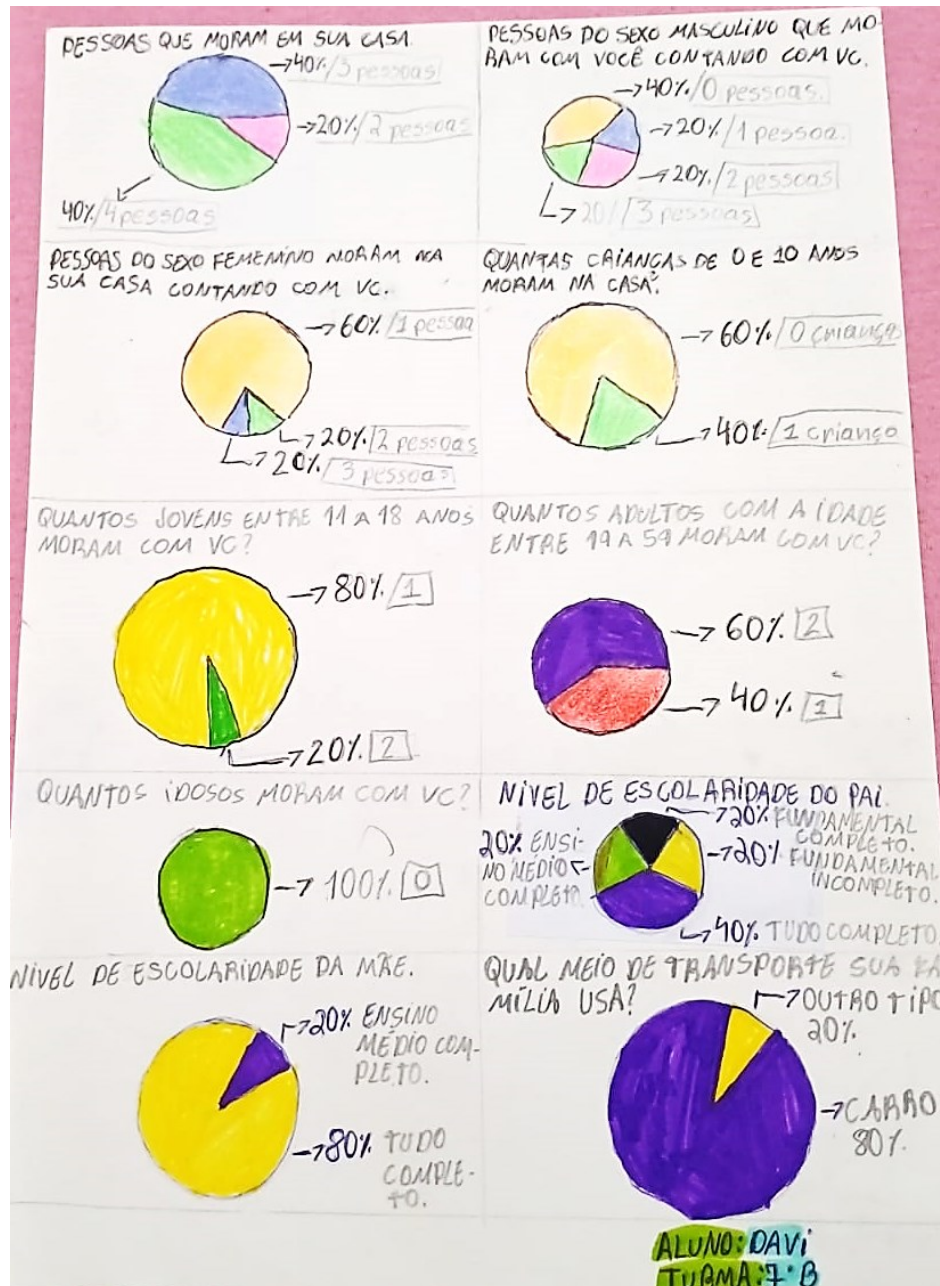 PESSOAS QUE MORAM EM SUA CASA.
→40%/3 pessoas
→20%/2 pessoas
40%/4 pessoas
PESSOAS DO SEXO MASCULINO QUE MO-
RAM COM VOCÊ CONTANDO COM VC.
→40%/0 pessoas.
→20%/1 pessoa.
→20%/2 pessoas
→20%/3 pessoas
PESSOAS DO SEXO FEMEMINO MORAM NA
SUA CASA CONTANDO COM VC.
→60%/1 pessoa
→20%/2 pessoas
→20%/3 pessoas
QUANTAS CRIANÇAS DE 0 E 10 ANOS
MORAM NA CASA?
→60%/0 criança
→40%/1 criança
QUANTOS JOVENS ENTRE 11 A 18 ANOS
MORAM COM VC?
→80%/1
→20%/2
QUANTOS ADULTOS COM A IDADE
ENTRE 19 A 59 MORAM COM VC?
→60% 2
→40% 1
QUANTOS IDOSOS MORAM COM VC?
→100% 0
NÍVEL DE ESCOLARIDADE DO PAI.
→20% FUNDAMENTAL
COMPLETO.
→20% FUNDAMENTAL
INCOMPLETO.
20% ENSI-
NO MÉDIO
COMPLETO.
→40% TUDO COMPLETO
NÍVEL DE ESCOLARIDADE DA MÃE.
→20% ENSINO
MÉDIO COM-
PLETO.
→80% TUDO
COMPLE-
TO.
QUAL MEIO DE TRANSPORTE SUA FA
MÍLIA USA?
→OUTRO TIPO
20%.
→CARRO
80%.
ALUNO: DAVI
TURMA: 7º B